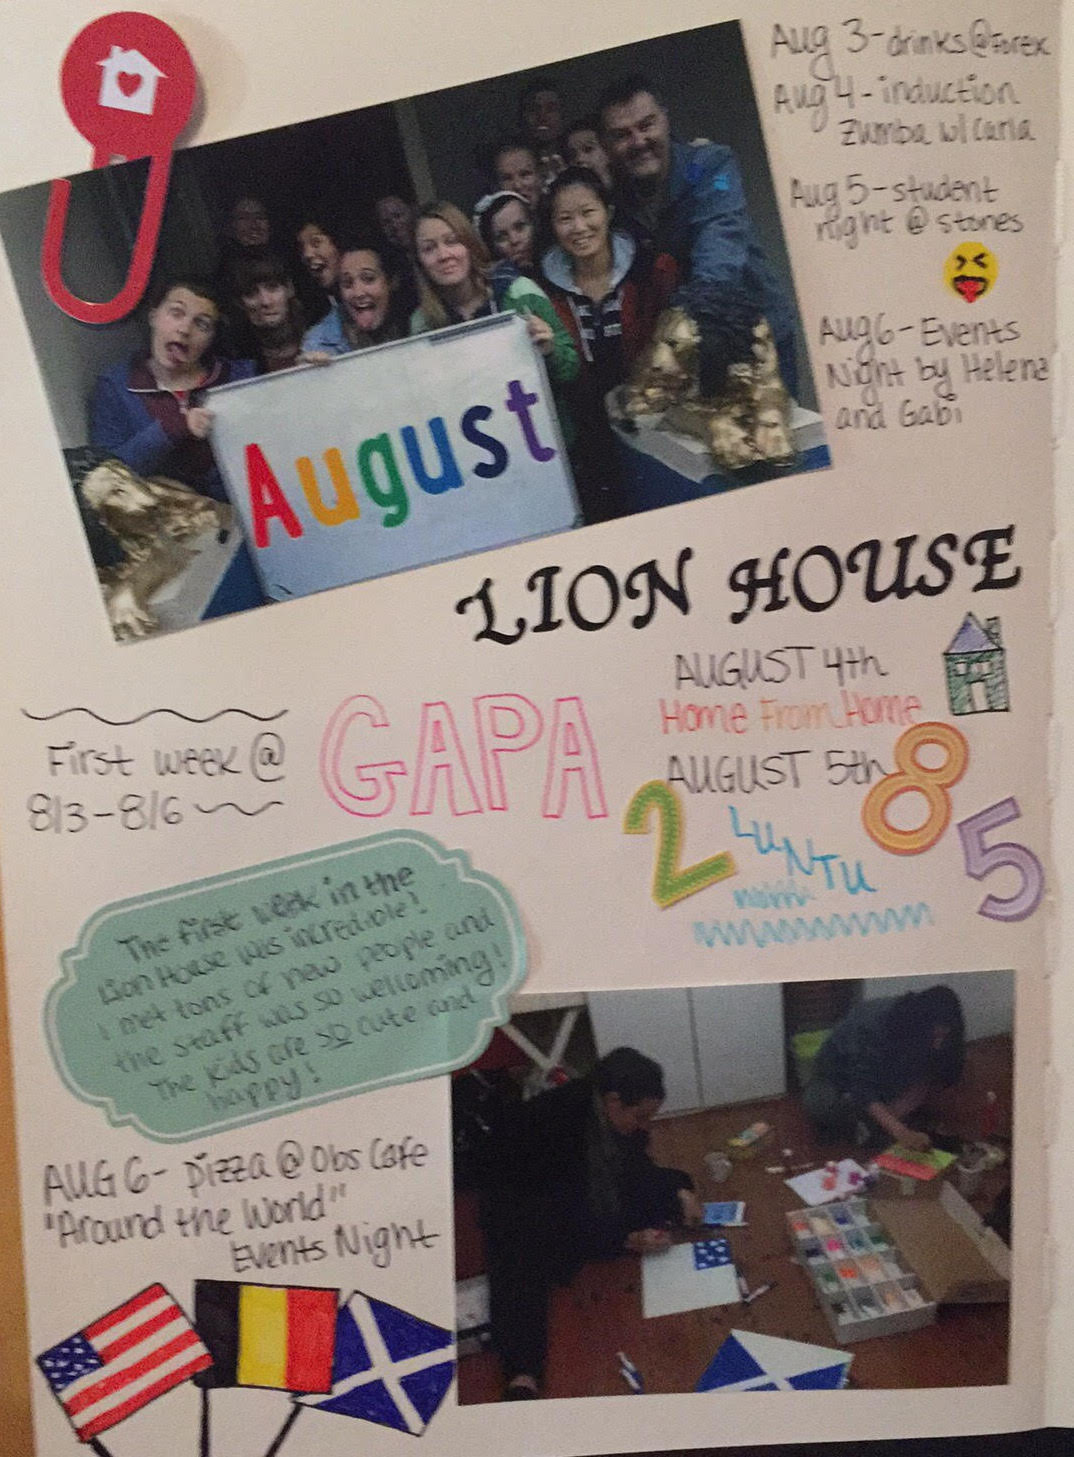 Aug 3-drinks@Forex
Aug 4-induction
Zumba w/ Carla
Aug 5-student
night @ stones
Aug 6-Events
Night by Helena
and Gabi
August
LION HOUSE
AUGUST 4th
Home From Home
AUGUST 5th
2 8 5
LUNTU
First week @
8/3-8/6
GAPA
The first week in the
Lion House was incredible!
I met tons of new people and
the staff was so wellcoming!
The kids are so cute and
happy!
AUG 6- pizza @ Obs Cafe
"Around the World"
Events Night